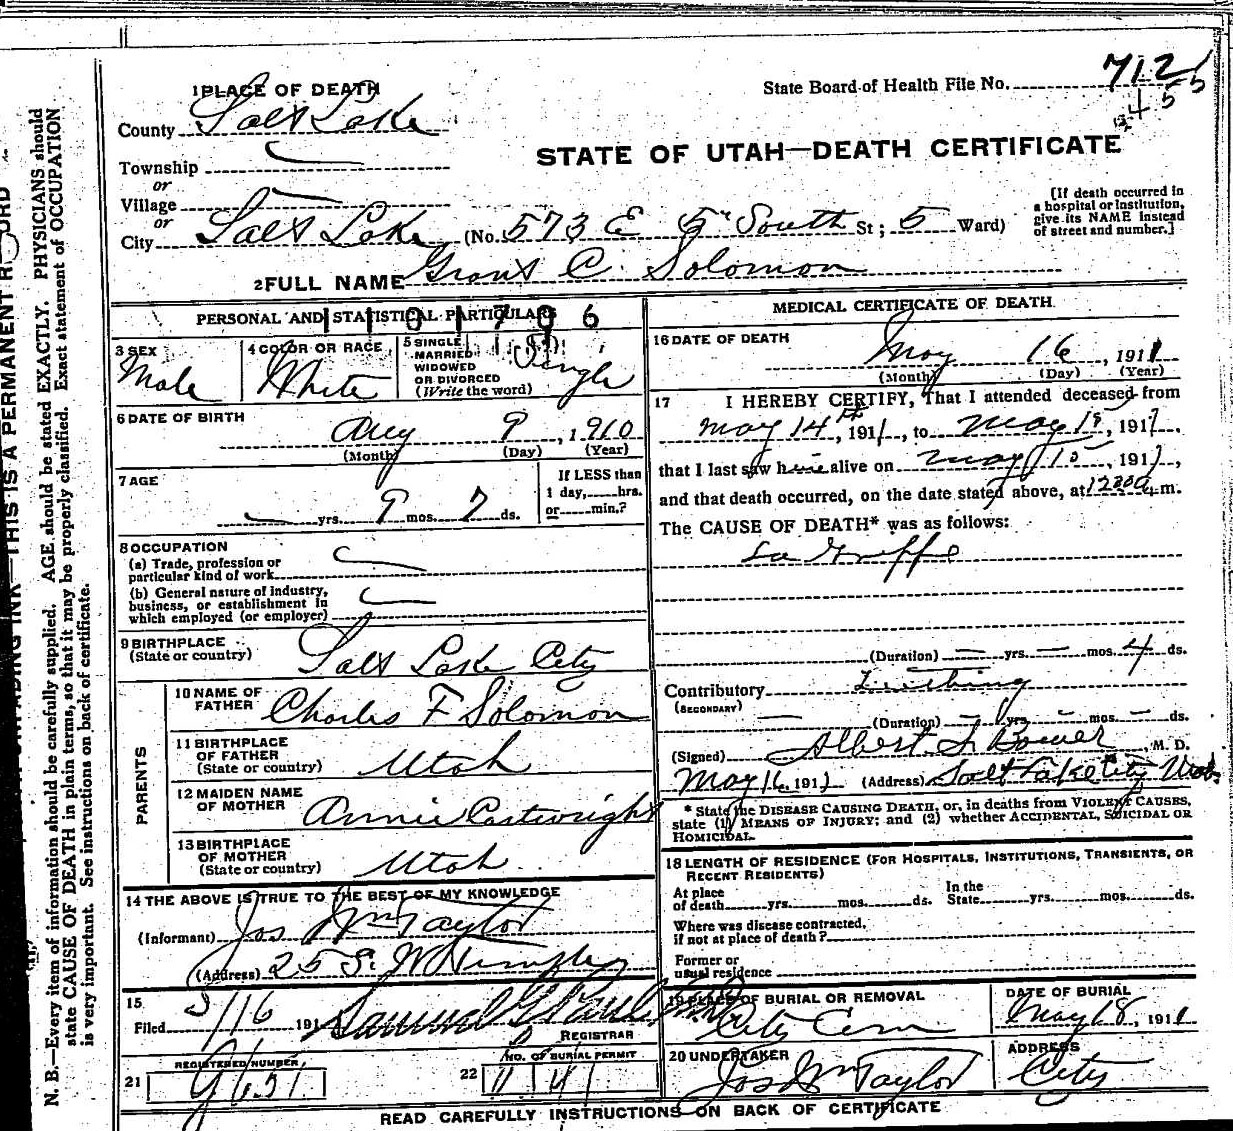 1 PLACE OF DEATH
State Board of Health File No. 712
County Salt Lake
STATE OF UTAH—DEATH CERTIFICATE
Township
or
Village
or
City Salt Lake (No. 573 E 5" South St; 5 Ward)
[If death occurred in
a hospital or institution,
give its NAME instead
of street and number.]
2 FULL NAME Grant C. Solomon
PERSONAL AND STATISTICAL PARTICULARS
3 SEX
Male
4 COLOR OR RACE
White
5 SINGLE
MARRIED
WIDOWED
OR DIVORCED
(Write the word)
Single
6 DATE OF BIRTH
Aug 9, 1910
(Month) (Day) (Year)
7 AGE
yrs. 9 mos. 7 ds.
If LESS than
1 day, hrs.
or min.?
8 OCCUPATION
(a) Trade, profession or
particular kind of work
(b) General nature of industry,
business, or establishment in
which employed (or employer)
9 BIRTHPLACE
(State or country) Salt Lake City
PARENTS
10 NAME OF
FATHER Charles F Solomon
11 BIRTHPLACE
OF FATHER
(State or country) Utah
12 MAIDEN NAME
OF MOTHER Annie Cartwright
13 BIRTHPLACE
OF MOTHER
(State or country) Utah
14 THE ABOVE IS TRUE TO THE BEST OF MY KNOWLEDGE
(Informant) Jos Wm Taylor
(Address) 25 S. W Temple
15
Filed 5/16 191
REGISTRAR
REGISTERED NUMBER
21
NO. OF BURIAL PERMIT
22
MEDICAL CERTIFICATE OF DEATH
16 DATE OF DEATH
May 16, 1911
(Month) (Day) (Year)
17 I HEREBY CERTIFY, That I attended deceased from
May 14th, 1911, to May 15, 1911,
that I last saw him alive on May 15, 1911,
and that death occurred, on the date stated above, at m.
The CAUSE OF DEATH* was as follows:
La Grippe
(Duration) — yrs. — mos. 4 ds.
Contributory Teething
(SECONDARY)
(Duration) — yrs — mos. — ds.
(Signed) Albert S Bower, M. D.
May 16 1911 (Address) Salt Lake City Utah
* State the DISEASE CAUSING DEATH, or, in deaths from VIOLENT CAUSES,
state (1) MEANS OF INJURY; and (2) whether ACCIDENTAL, SUICIDAL OR
HOMICIDAL.
18 LENGTH OF RESIDENCE (FOR HOSPITALS, INSTITUTIONS, TRANSIENTS, OR
RECENT RESIDENTS)
At place
of death yrs. mos. ds.
In the
State yrs. mos. ds.
Where was disease contracted,
if not at place of death?
Former or
usual residence
19 PLACE OF BURIAL OR REMOVAL
City Cem
DATE OF BURIAL
May 18, 1911
20 UNDERTAKER
Jos Wm Taylor
ADDRESS
City
READ CAREFULLY INSTRUCTIONS ON BACK OF CERTIFICATE
N. B.—Every item of information should be carefully supplied. AGE should be stated EXACTLY. PHYSICIANS should
state CAUSE OF DEATH in plain terms, so that it may be properly classified. Exact statement of OCCUPATION
is very important. See instructions on back of certificate.